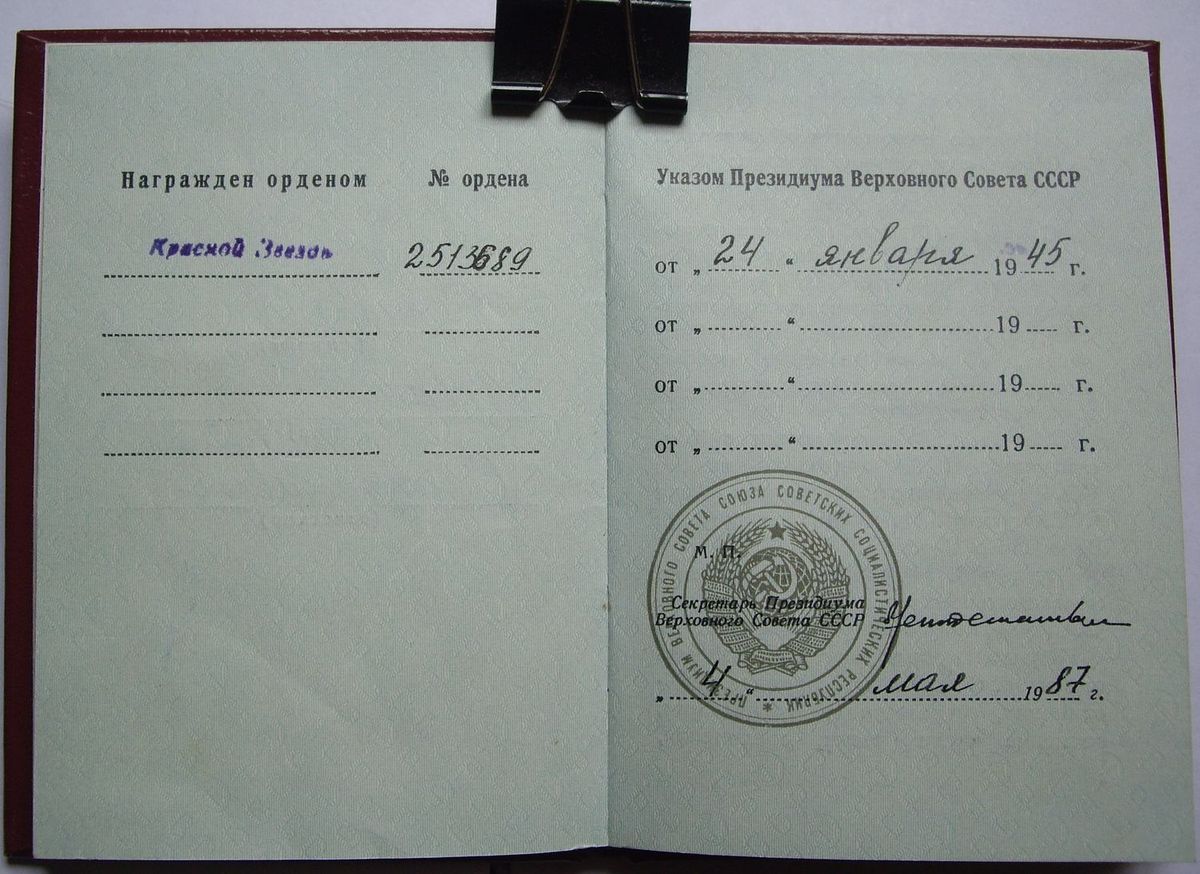 Награжден орденом
№ ордена
Красной Звезды
2513689
Указом Президиума Верховного Совета СССР
от „ 24 “ января 1945 г.
от „ “ 19 г.
от „ “ 19 г.
от „ “ 19 г.
ПРЕЗИДИУМ ВЕРХОВНОГО СОВЕТА СОЮЗА СОВЕТСКИХ СОЦИАЛИСТИЧЕСКИХ РЕСПУБЛИК
М. П.
Секретарь Президиума
Верховного Совета СССР
„ 4 “ мая 1987 г.